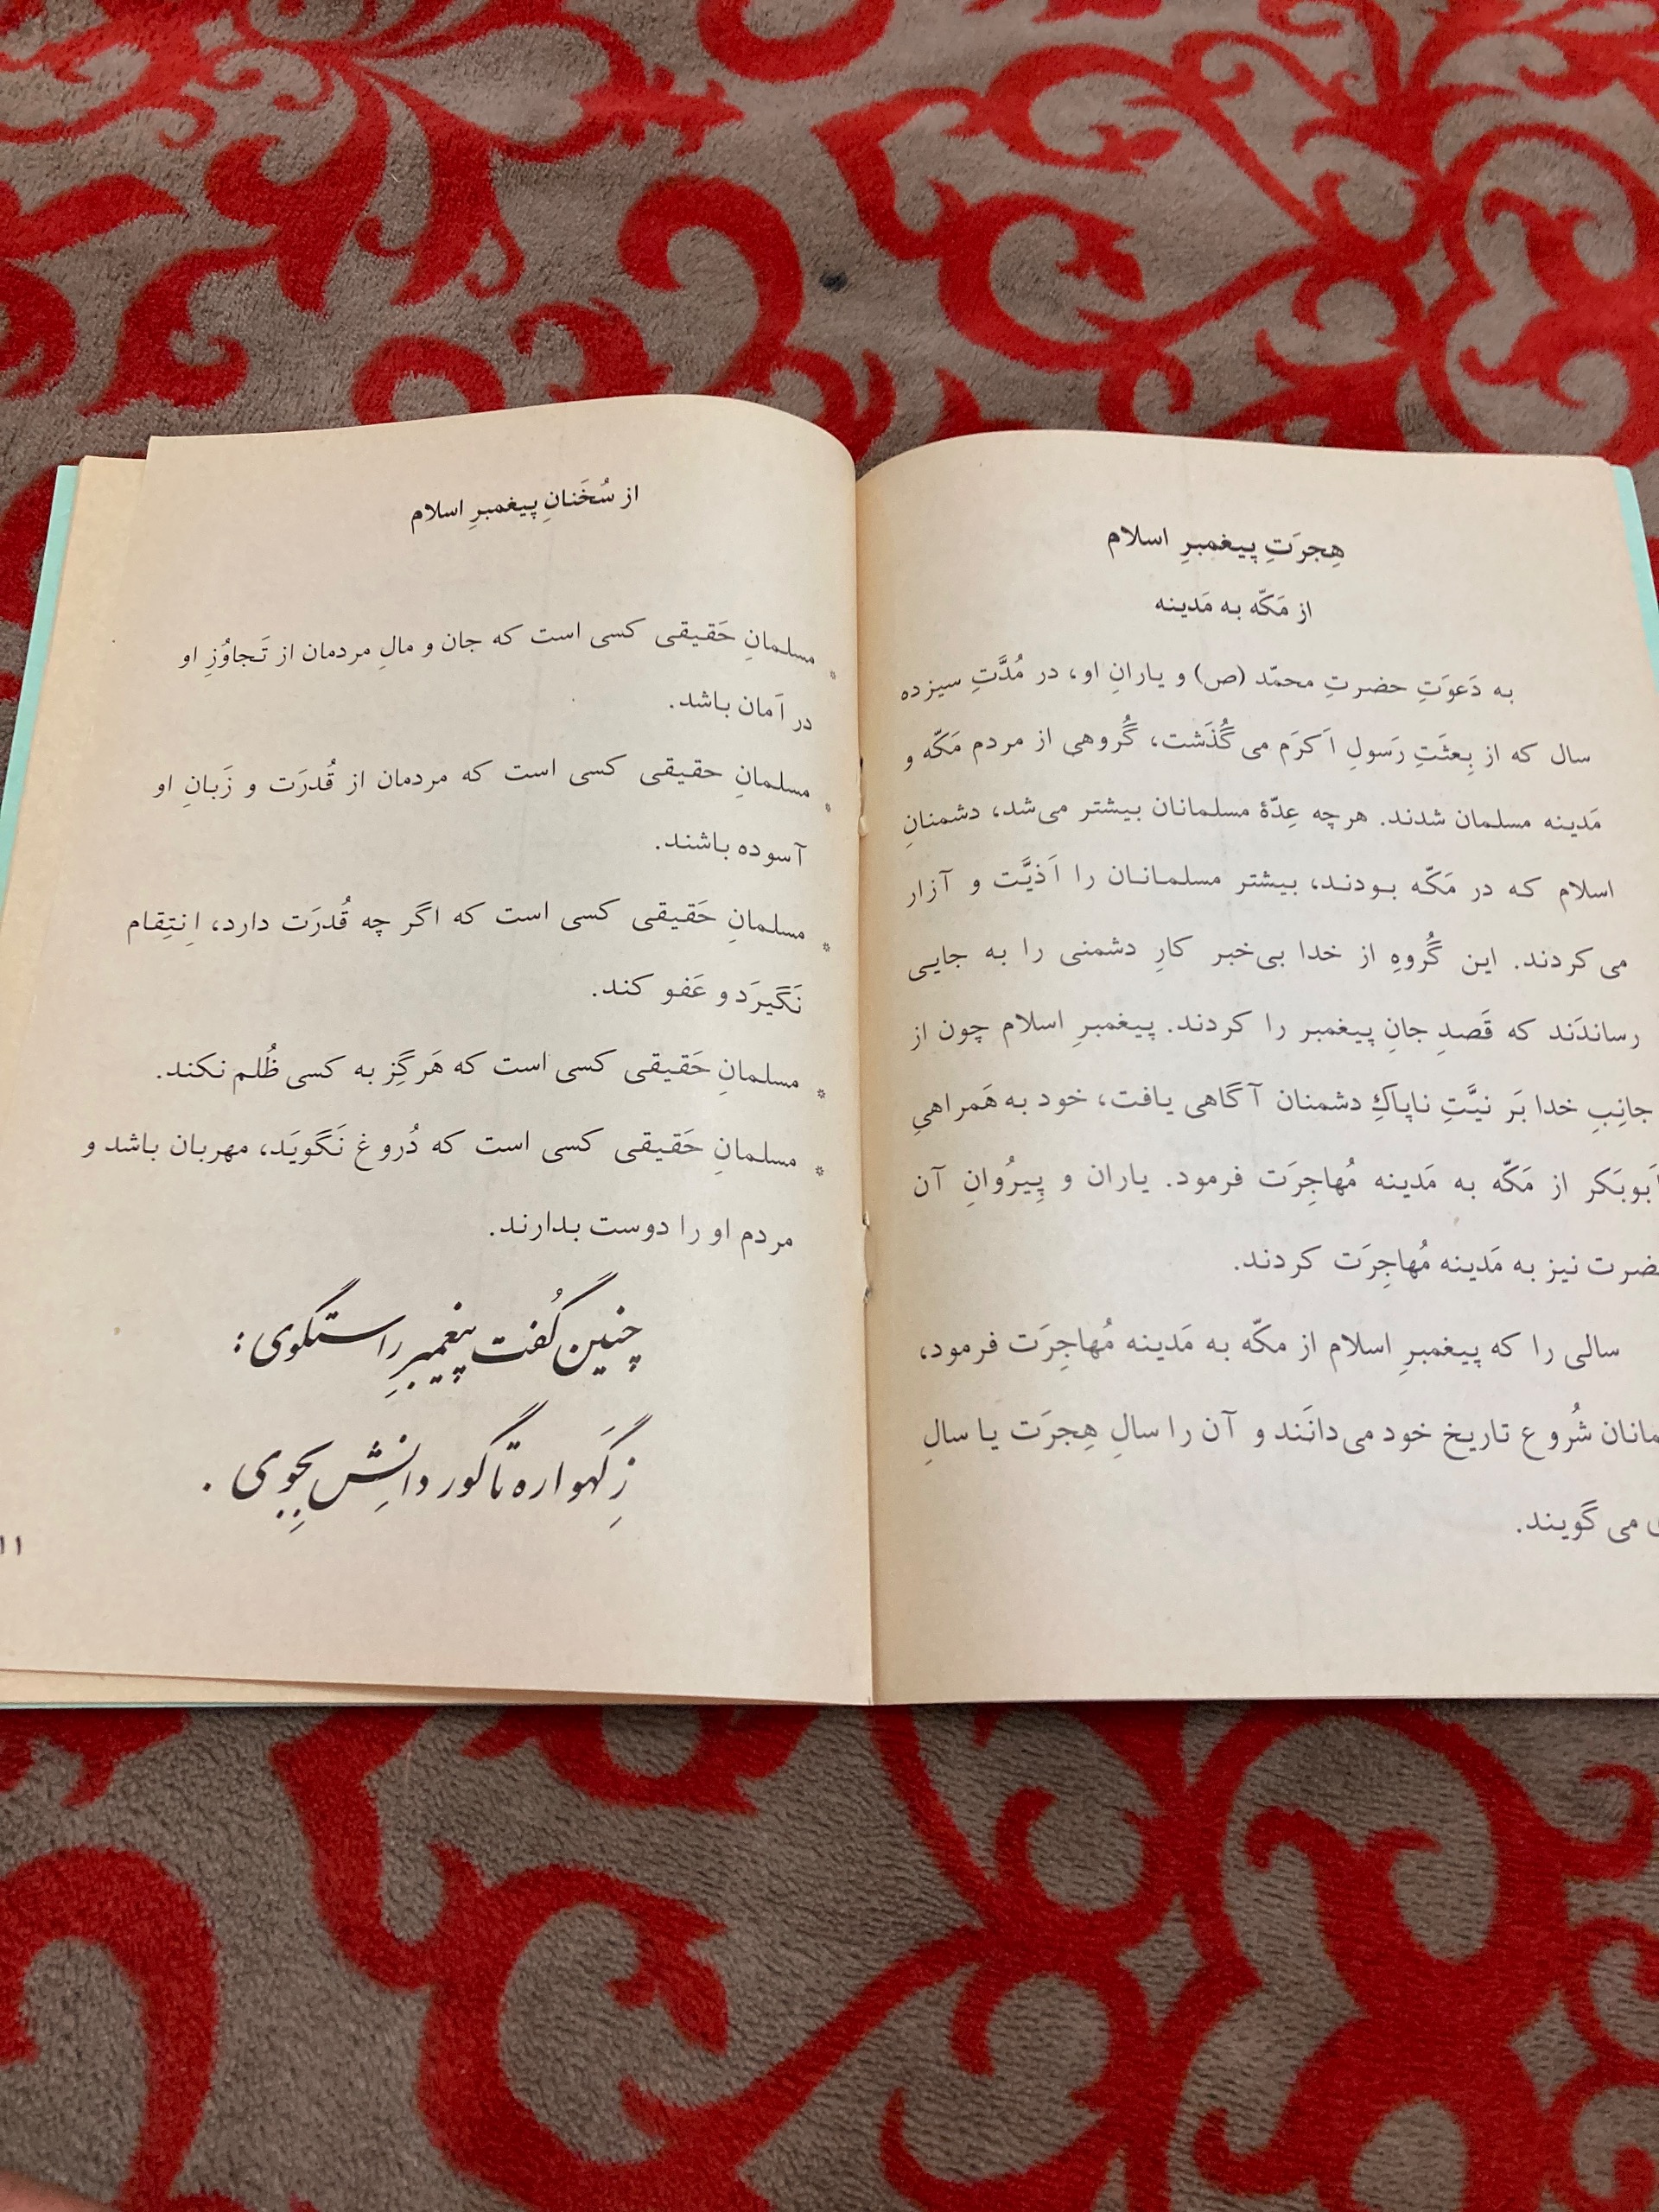 هِجرَتِ پیغمبرِ اسلام
از مَکّه به مَدینه
به دَعوَتِ حضرتِ محمّد (ص) و یارانِ او، در مُدَّتِ سیزده
سال که از بِعثَتِ رَسولِ اَکرَم می‌گُذَشت، گُروهی از مردم مَکّه و
مَدینه مسلمان شدند. هرچه عِدّهٔ مسلمانان بیشتر می‌شد، دشمنانِ
اسلام که در مَکّه بودند، بیشتر مسلمانان را اَذیَّت و آزار
می‌کردند. این گُروهِ از خدا بی‌خبر کارِ دشمنی را به جایی
رساندَند که قَصدِ جانِ پیغمبر را کردند. پیغمبرِ اسلام چون از
جانِبِ خدا بَر نیَّتِ ناپاکِ دشمنان آگاهی یافت، خود به هَمراهیِ
اَبوبَکر از مَکّه به مَدینه مُهاجِرَت فرمود. یاران و پِیرُوانِ آن
ضرت نیز به مَدینه مُهاجِرَت کردند.
سالی را که پیغمبرِ اسلام از مکّه به مَدینه مُهاجِرَت فرمود،
مانان شُروع تاریخ خود می‌دانَند و آن را سالِ هِجرَت یا سالِ
ی می‌گویند.
از سُخَنانِ پیغمبرِ اسلام
* مسلمانِ حَقیقی کسی است که جان و مالِ مردمان از تَجاوُزِ او
در اَمان باشد.
* مسلمانِ حقیقی کسی است که مردمان از قُدرَت و زَبانِ او
آسوده باشند.
* مسلمانِ حَقیقی کسی است که اگر چه قُدرَت دارد، اِنتِقام
نَگیرَد و عَفو کند.
* مسلمانِ حَقیقی کسی است که هَرگِز به کسی ظُلم نکند.
* مسلمانِ حَقیقی کسی است که دُروغ نَگویَد، مهربان باشد و
مردم او را دوست بدارند.
چنین گُفت پیغمبرِ راستگوی:
زِ گَهواره تا گور دانِش بِجوی.
۱۱